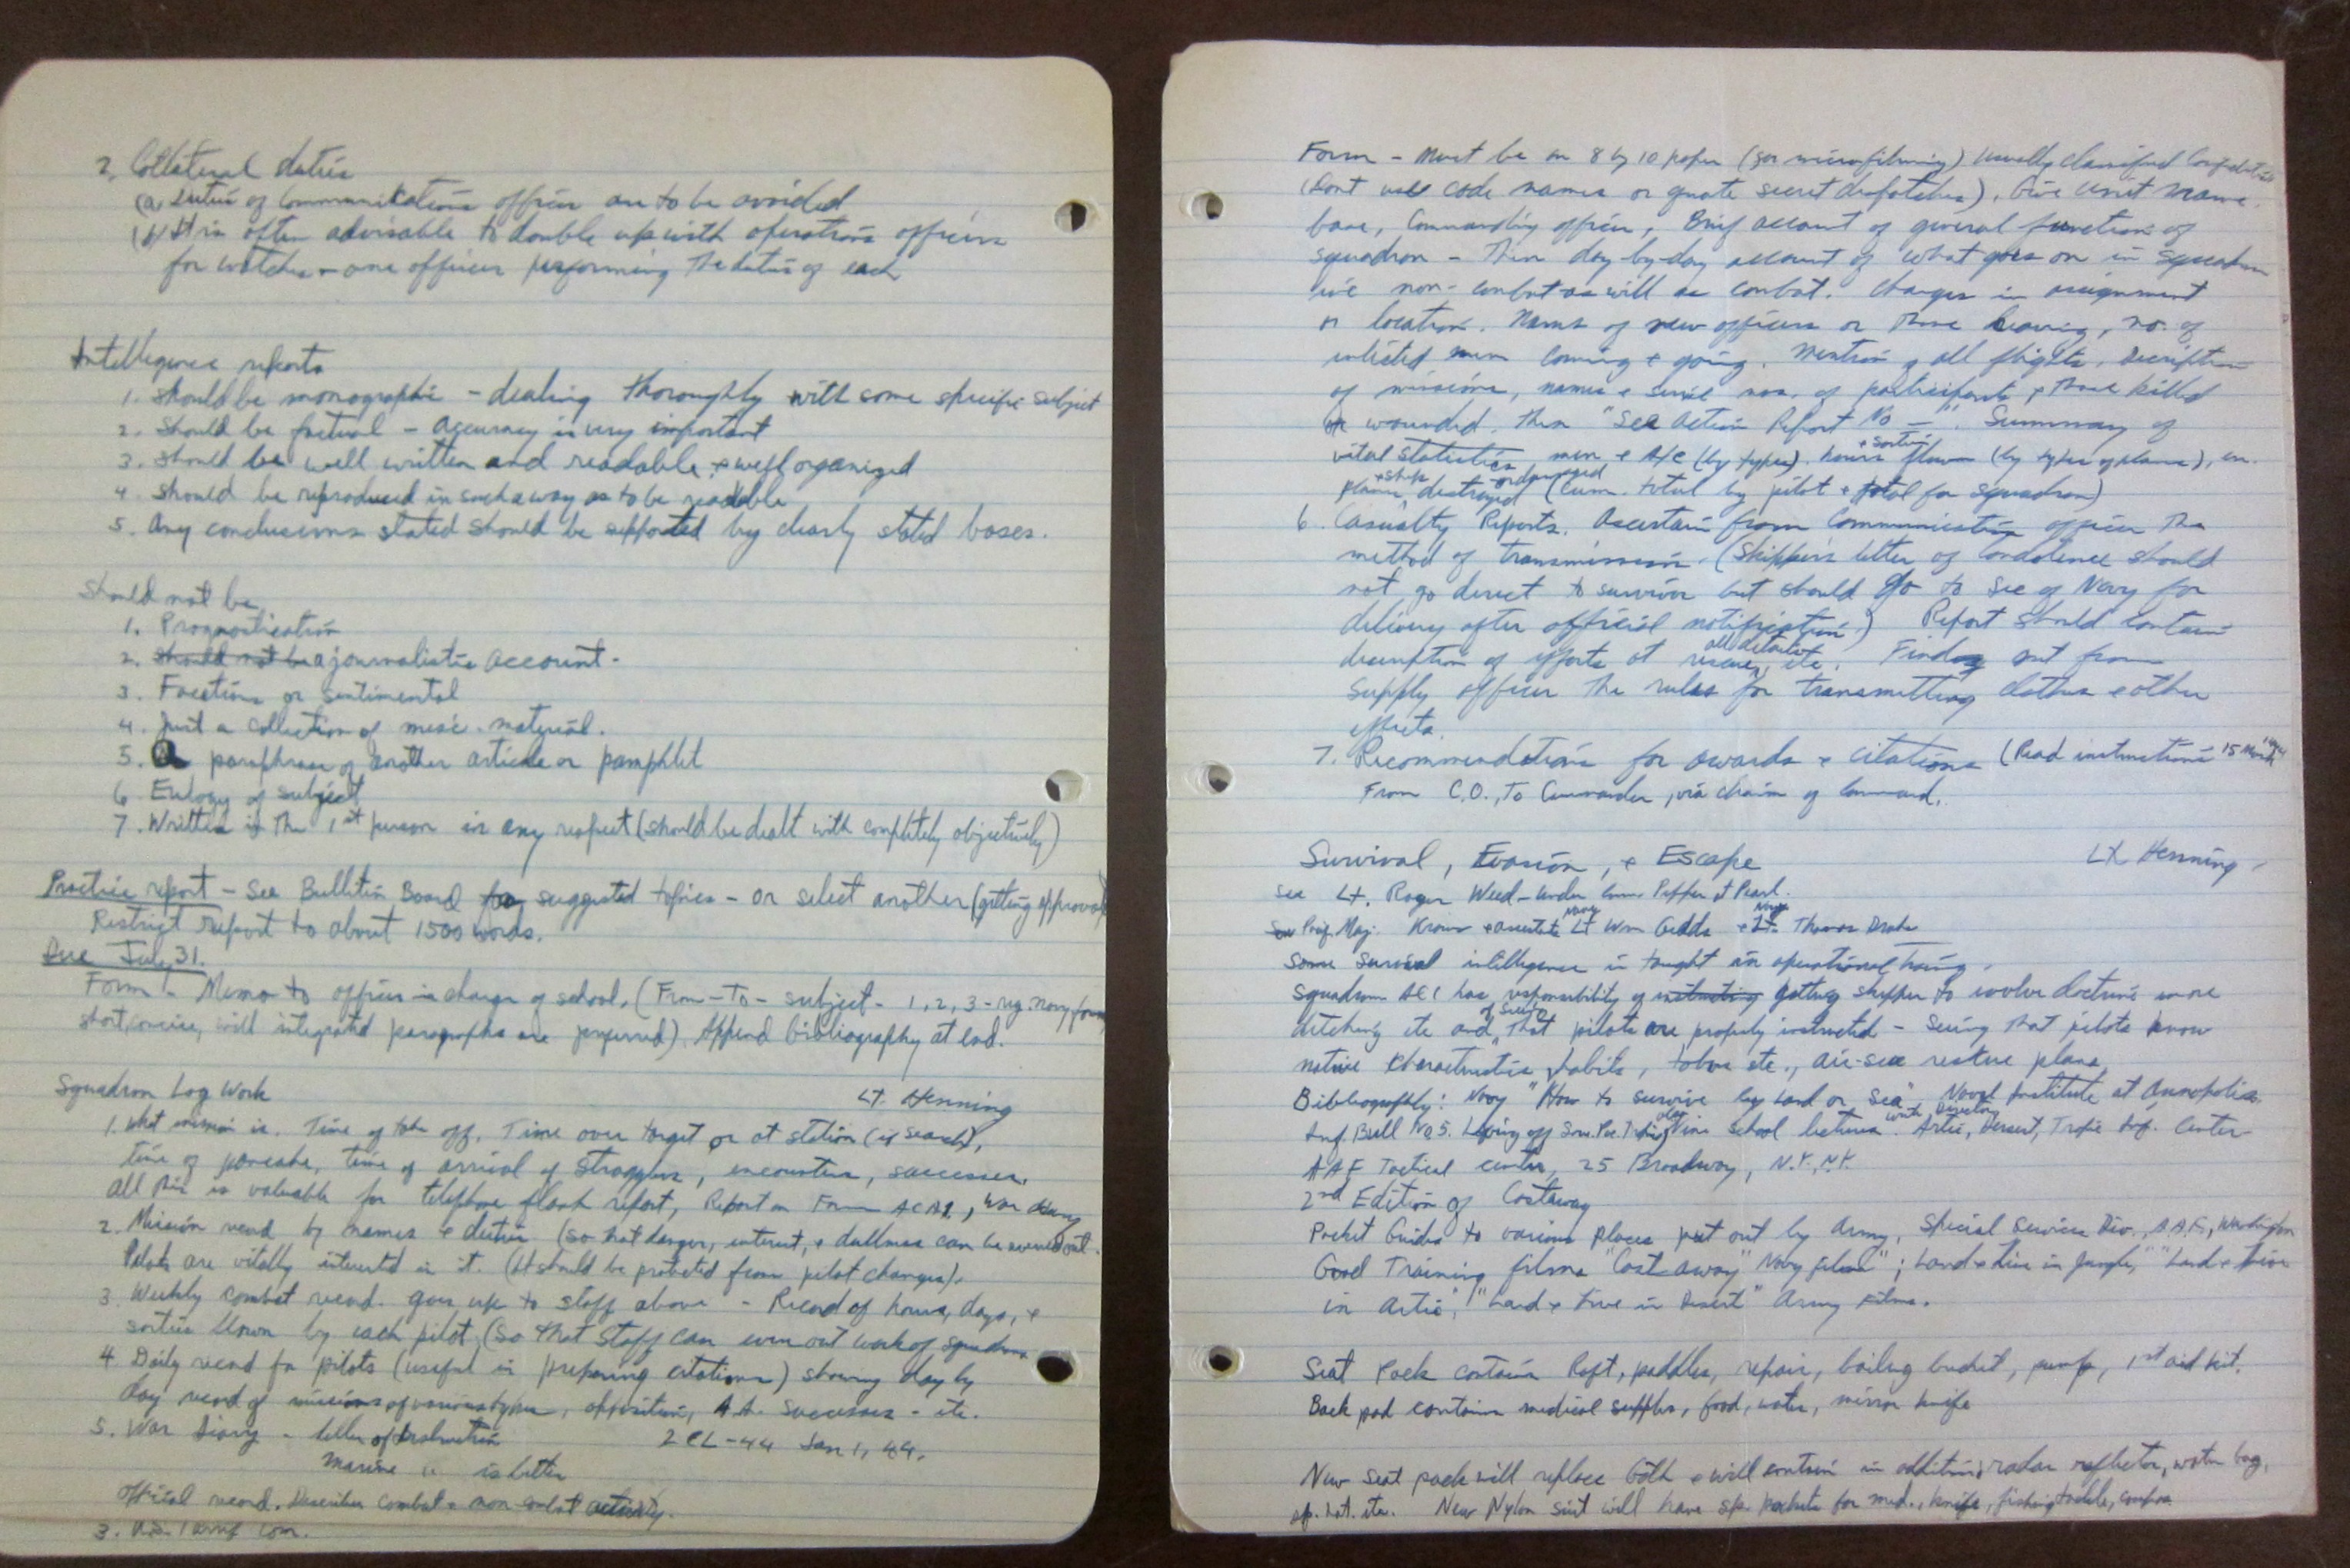 2. Collateral duties
(a) Duties of Communications officer are to be avoided
(b) It is often advisable to double up with operations officers
for watches - one officer performing the duties of each
Intelligence reports
1. Should be monographic - dealing thoroughly with some specific subject
2. Should be factual - accuracy is very important
3. Should be well written and readable, + well organized
4. Should be reproduced in such a way as to be readable
5. Any conclusions stated should be supported by clearly stated bases.
Should not be
1. Prognostication
2. should not be a journalistic account.
3. Facetious or sentimental
4. Just a collection of misc. material.
5. A paraphrase of another article or pamphlet
6. Eulogy of subject
7. Written in the 1st person in any respect (should be dealt with completely objectively)
Practice report - See Bulletin Board for suggested topics - or select another (getting approval)
Restrict report to about 1500 words.
Due July 31.
Form - Memo to officer in charge of school, (From - To - Subject - 1, 2, 3 - reg. navy form
short, concise, well integrated paragraphs are preferred). Append bibliography at end.
Squadron Log Work
Lt. Henning
1. What mission is. Time of take off, Time over target or at station (if search),
time of pancake, time of arrival of stragglers, encounters, successes.
All this is valuable for telephone flash report, Report on Form ACA1, War Diary
2. Mission record by names + duties (so that danger, interest, + dullness can be evened out.
Pilots are vitally interested in it. (It should be protected from pilot changes).
3. Weekly combat record. goes up to staff above - Record of hours, days, +
sorties flown by each pilot (So that staff can even out work of squadrons
4. Daily record for pilots (useful in preparing citations) showing day by
day record of missions of various types, opposition, A.A. successes - etc.
5. War Diary - letter of Instruction 2CL-44 Jan 1, 44.
Marine " is better
Official record. Describes combat + non-combat activity.
Form - Must be on 8 by 10 paper (for microfilming) Usually classified Confidential
(Dont use code names or quote secret dispatches). Give unit name,
base, Commanding officer, Brief account of general function of
squadron - Then day-by-day account of what goes on in squadron
i.e. non-combat as well as combat. Changes in assignment
or location. Names of new officers or those leaving, no. of
enlisted men coming + going. Mention of all flights, description
of missions, names + serial nos. of participants, + those killed
or wounded, then "See Action Report No —". Summary of
vital statistics, men + A/C (by types). hours + sorties flown (by types of planes),
planes + ships destroyed or damaged (cum. total by pilot + total for squadron)
6. Casualty Reports. Ascertain from Communication officer the
method of transmission. (Skipper's letter of condolence should
not go direct to survivor but should go to Sec of Navy for
delivery after official notification.) Report should contain
description of efforts at rescue, all details, etc. Find out from
Supply officer the rules for transmitting clothes + other
effects.
7. Recommendations for awards + citations (Read instructions 15 March
From C.O., To Commander, via chain of command.
Survival, Evasion, + Escape
Lt Henning
See Lt. Roger Weed - under Comm. Pepper at Pearl.
Lt Wm Gedds + Lt. Thomas Drake
Some survival intelligence is taught in operational
Squadron ACI has responsibility of instructing getting skipper to evolve doctrine more
ditching etc and of seeing that pilots are properly instructed - Seeing that pilots know
native characteristics, habits, taboos etc., air-sea rescue plans
Bibliography: Navy "How to survive by Land or Sea" Naval Institute at Annapolis.
Inf. Bull No 5. school lectures. Artic, Desert, Tropic Inf. Center
AAF Tactical center, 25 Broadway, N.Y., N.Y.
2nd Edition of Castaway
Pocket Guides to various places put out by Army, Special Services Div., A.A.F., Washington
Good Training films "Cast away" Navy film"; "Land + Live in Jungle," "Land + Live
in Artic", "Land + Live in Desert" Army Films.
Seat Pack contains Raft, paddles, repair, bailing bucket, pump, 1st aid kit.
Back pad contains medical supplies, food, water, mirror knife
New seat pack will replace both + will contain in addition: radar reflector, water bag,
hat. etc. New Nylon suit will have sp. pockets for med., knife, fishing tackle, compass